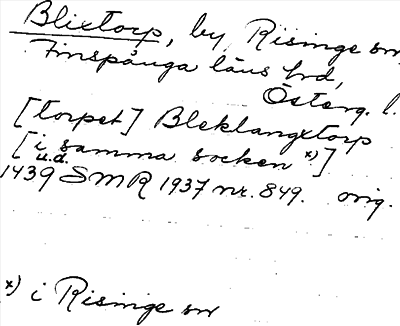 Blixtorp, by, Risinge sn,
Finspånga läns hd,
Österg. l.
[torpet] Bleklangxtorp
[i samma socken x)]
u.d.
1439 SMR 1937 nr. 849. orig.
x) i Risinge sn